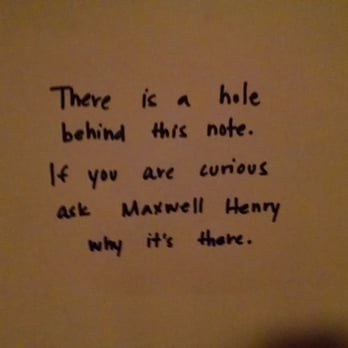 There is a hole
behind this note.
If you are curious
ask Maxwell Henry
why it's there.